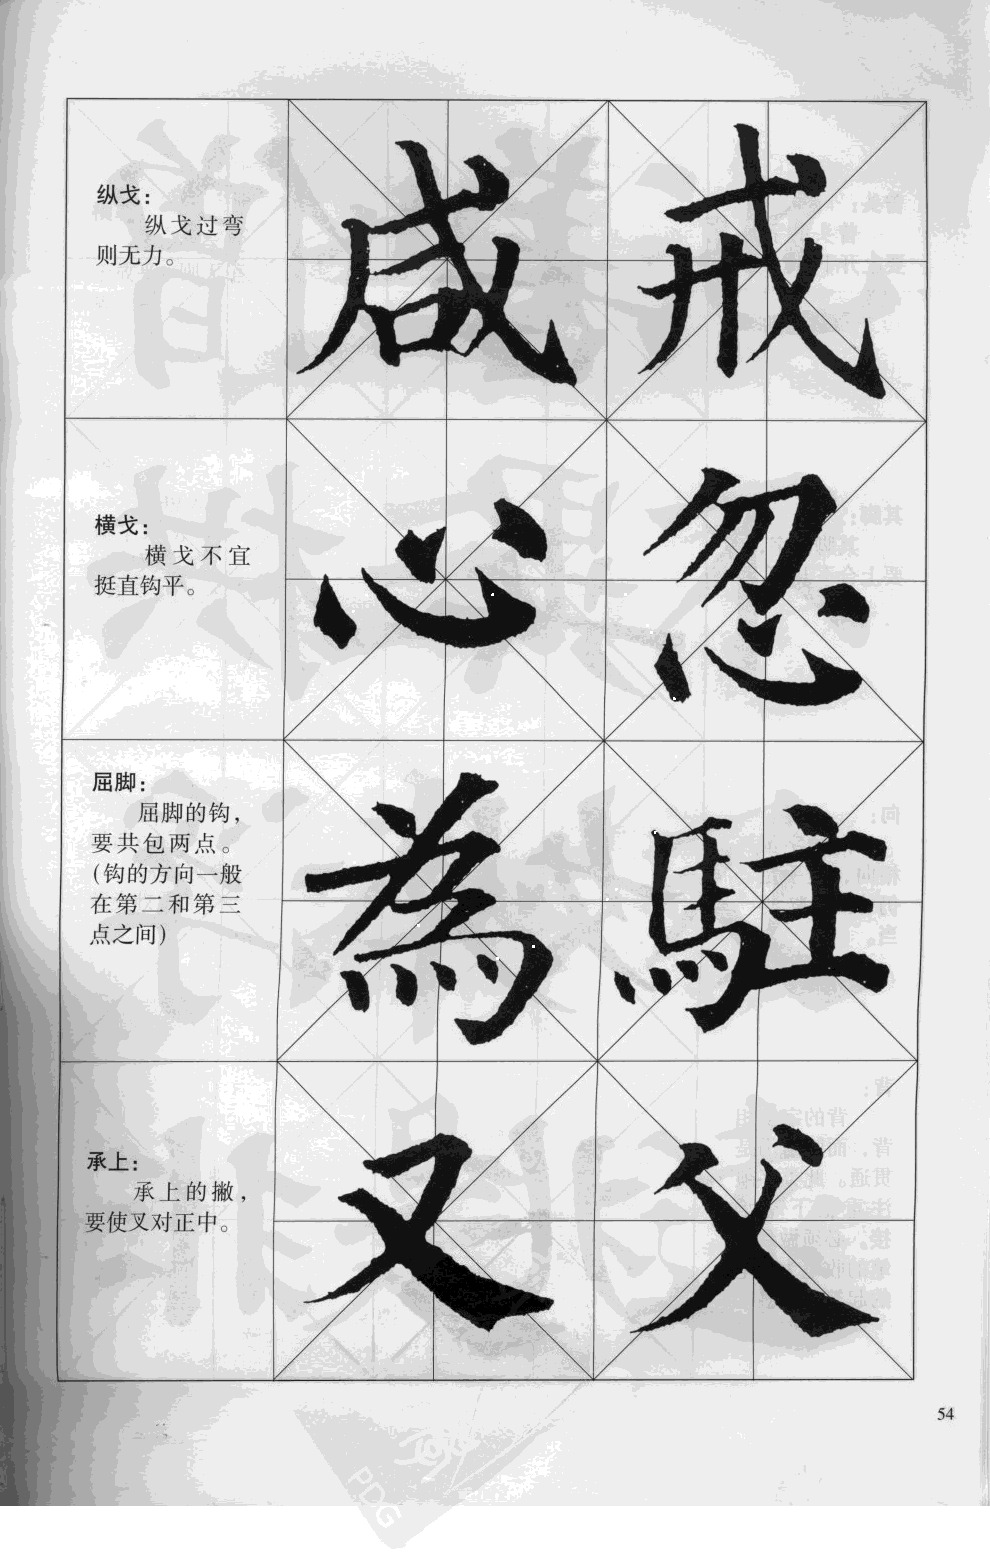 纵戈：
纵戈过弯
则无力。
咸 戒
横戈：
横戈不宜
挺直钩平。
心 忽
屈脚：
屈脚的钩，
要共包两点。
（钩的方向一般
在第二和第三
点之间）
為 駐
承上：
承上的撇，
要使叉对正中。
又 父
54
PDG